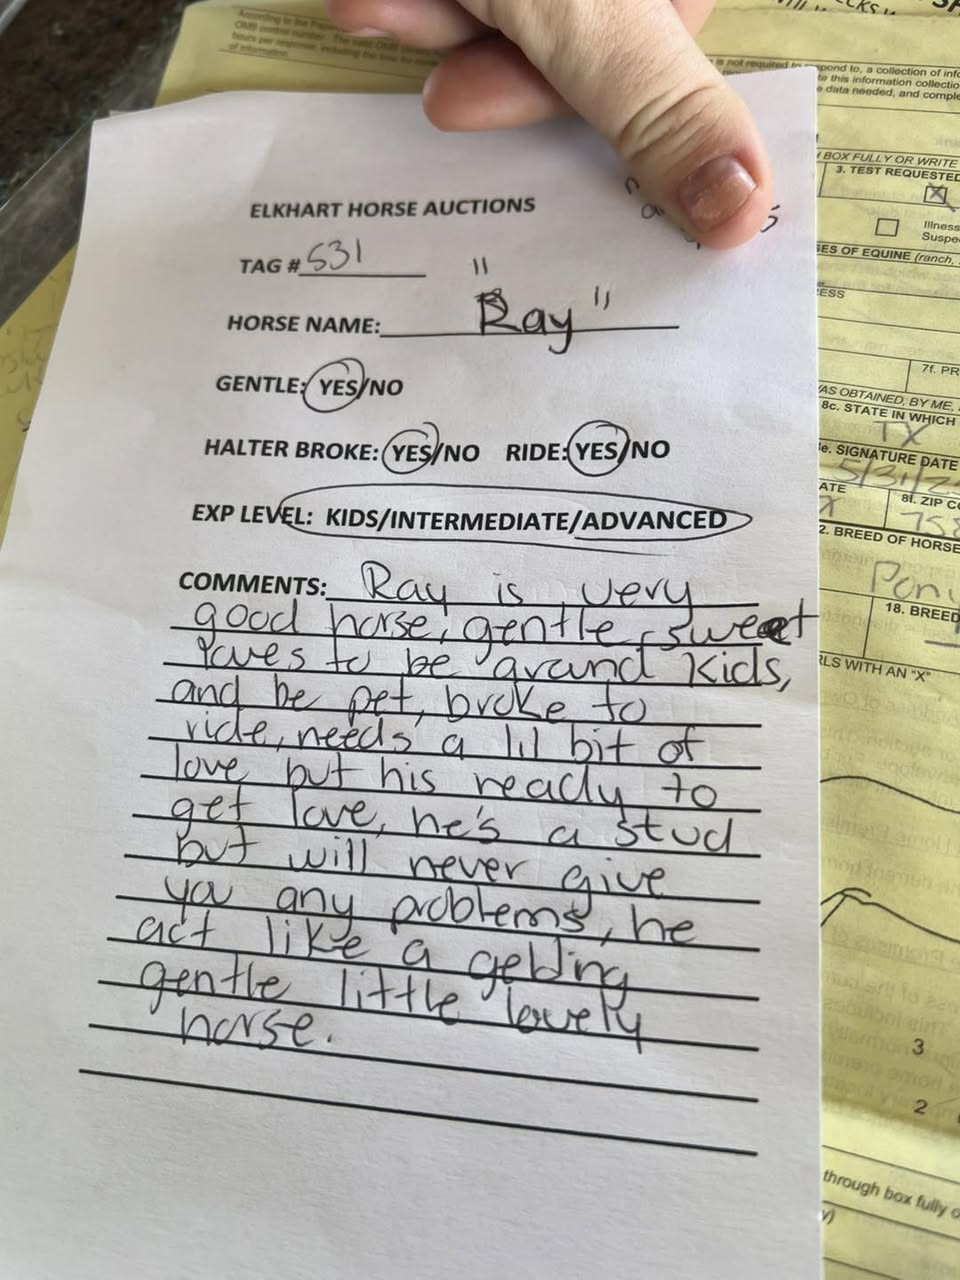 ELKHART HORSE AUCTIONS
TAG # 531
HORSE NAME: "Ray"
GENTLE: YES/NO
HALTER BROKE: YES/NO RIDE: YES/NO
EXP LEVEL: KIDS/INTERMEDIATE/ADVANCED
COMMENTS: Ray is very
good horse, gentle, sweet
loves to be around kids,
and be pet, broke to
ride, needs a lil bit of
love but his ready to
get love, he's a stud
but will never give
you any problems, he
act like a gelding
gentle little lovely
horse.
According to the
OMB control number. The
hours per response, including the time for
of information.
CKS
is not required to respond to, a collection of
te this information collection
data needed, and
BOX FULLY OR WRITE
3. TEST REQUESTED
X
Illness
Suspe
ES OF EQUINE (ranch,
ESS
7f. PR
AS OBTAINED, BY ME,
8c. STATE IN WHICH
TX
e. SIGNATURE DATE
5/31/2
ATE
8f. ZIP CO
X
758
2. BREED OF HORSE
Pon
18. BREED
RLS WITH AN "X"
3
2
through box fully